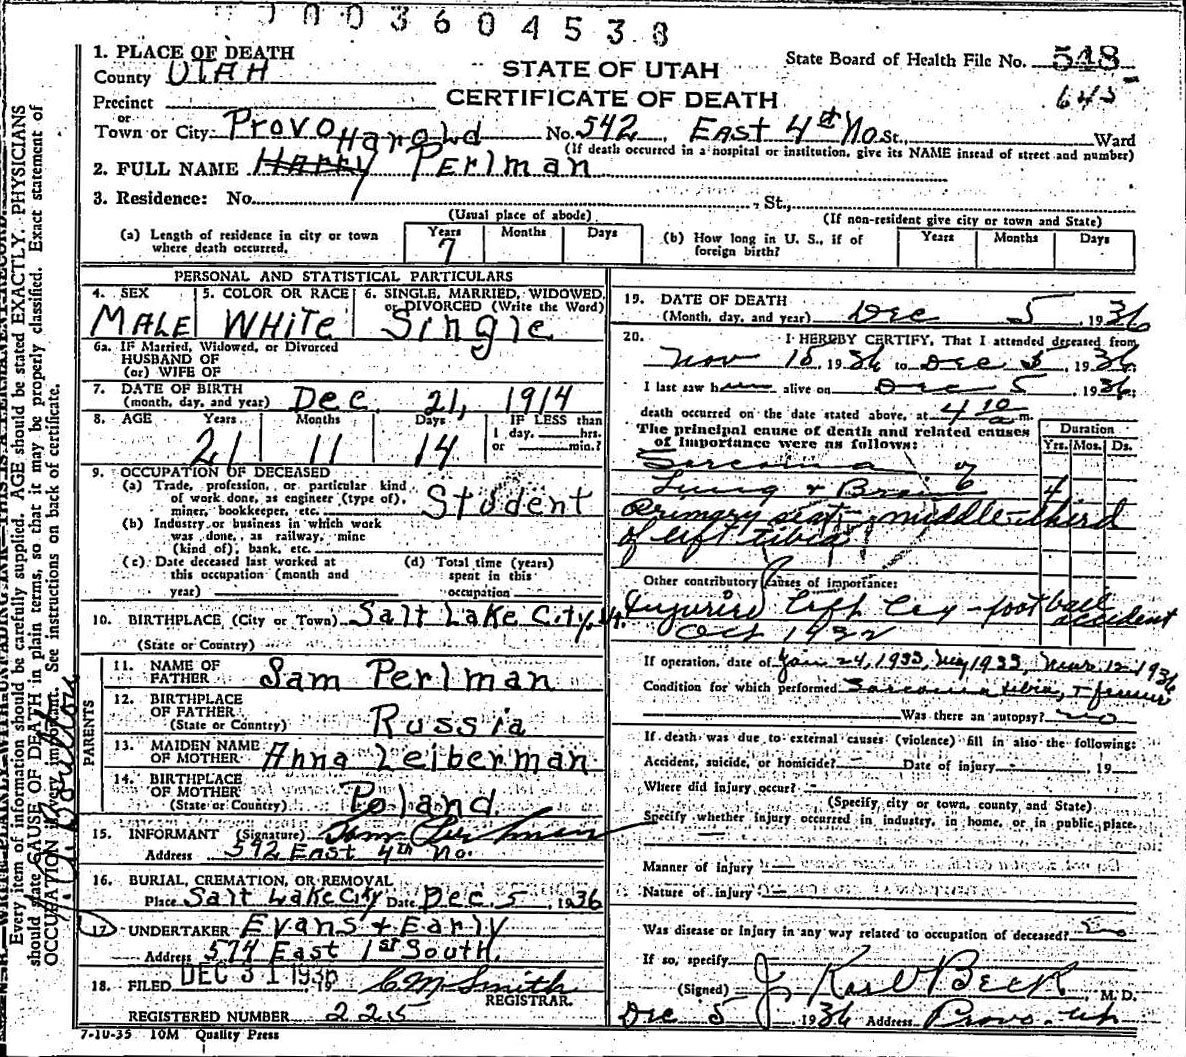 1003604538
1. PLACE OF DEATH
County UTAH
STATE OF UTAH
State Board of Health File No. 548
645
CERTIFICATE OF DEATH
Precinct
or
Town or City Provo No. 542 East 4th No St., Ward
(If death occurred in a hospital or institution, give its NAME instead of street and number)
Harold
2. FULL NAME Harry Perlman
3. Residence: No. St.,
(Usual place of abode) (If non-resident give city or town and State)
(a) Length of residence in city or town where death occurred. Years 7 Months Days
(b) How long in U. S., if of foreign birth? Years Months Days
PERSONAL AND STATISTICAL PARTICULARS
4. SEX MALE
5. COLOR OR RACE WHITE
6. SINGLE, MARRIED, WIDOWED, or DIVORCED (Write the Word) Single
6a. IF Married, Widowed, or Divorced
HUSBAND OF
(or) WIFE OF
7. DATE OF BIRTH
(month, day, and year) Dec. 21, 1914
8. AGE Years 21 Months 11 Days 14 IF LESS than 1 day, hrs. or min.?
9. OCCUPATION OF DECEASED
(a) Trade, profession, or particular kind of work done, as engineer (type of), miner, bookkeeper, etc. Student
(b) Industry or business in which work was done, as railway, mine (kind of), bank, etc.
(c) Date deceased last worked at this occupation (month and year)
(d) Total time (years) spent in this occupation
10. BIRTHPLACE (City or Town) Salt Lake City, Ut.
(State or Country)
PARENTS
11. NAME OF FATHER Sam Perlman
12. BIRTHPLACE OF FATHER
(State or Country) Russia
13. MAIDEN NAME OF MOTHER Anna Leiberman
14. BIRTHPLACE OF MOTHER
(State or Country) Poland
15. INFORMANT (Signature) Sam Perlman
Address 592 East 4th No.
16. BURIAL, CREMATION, OR REMOVAL
Place Salt Lake City Date Dec. 5, 1936
17. UNDERTAKER Evans & Early
Address 574 East 1st South.
18. FILED DEC 31 1936 C M Smith
REGISTRAR.
REGISTERED NUMBER 225
7-10-35 10M Quality Press
19. DATE OF DEATH
(Month, day, and year) Dec 5, 1936
20. I HEREBY CERTIFY, That I attended deceased from
Nov 15, 1936 to Dec 5, 1936
I last saw him alive on Dec 5, 1936;
death occurred on the date stated above, at 4 10 a m.
The principal cause of death and related causes of importance were as follows:
Duration
Yrs. Mos. Ds.
Sarcoma of
Lung & Brain 4
Primary seat - middle third
of left tibia
Other contributory causes of importance:
Injuries left leg - football accident
Oct 1932
If operation, date of Jan 24, 1933, May 1933, Mar. 12 1936
Condition for which performed Sarcoma tibia, + femur
Was there an autopsy? no
If death was due to external causes (violence) fill in also the following:
Accident, suicide, or homicide? Date of injury 19
Where did injury occur?
(Specify city or town, county, and State)
Specify whether injury occurred in industry, in home, or in public place.
Manner of injury
Nature of injury
Was disease or injury in any way related to occupation of deceased? no
If so, specify
(Signed) J. Karl Beck, M. D.
Dec 5, 1936 Address Provo - Ut
N. B.—WRITE PLAINLY WITH UNFADING INK—THIS IS A PERMANENT RECORD
Every item of information should be carefully supplied. AGE should be stated EXACTLY. PHYSICIANS
should state CAUSE OF DEATH in plain terms, so that it may be properly classified. Exact statement of
OCCUPATION is very important. See instructions on back of certificate.